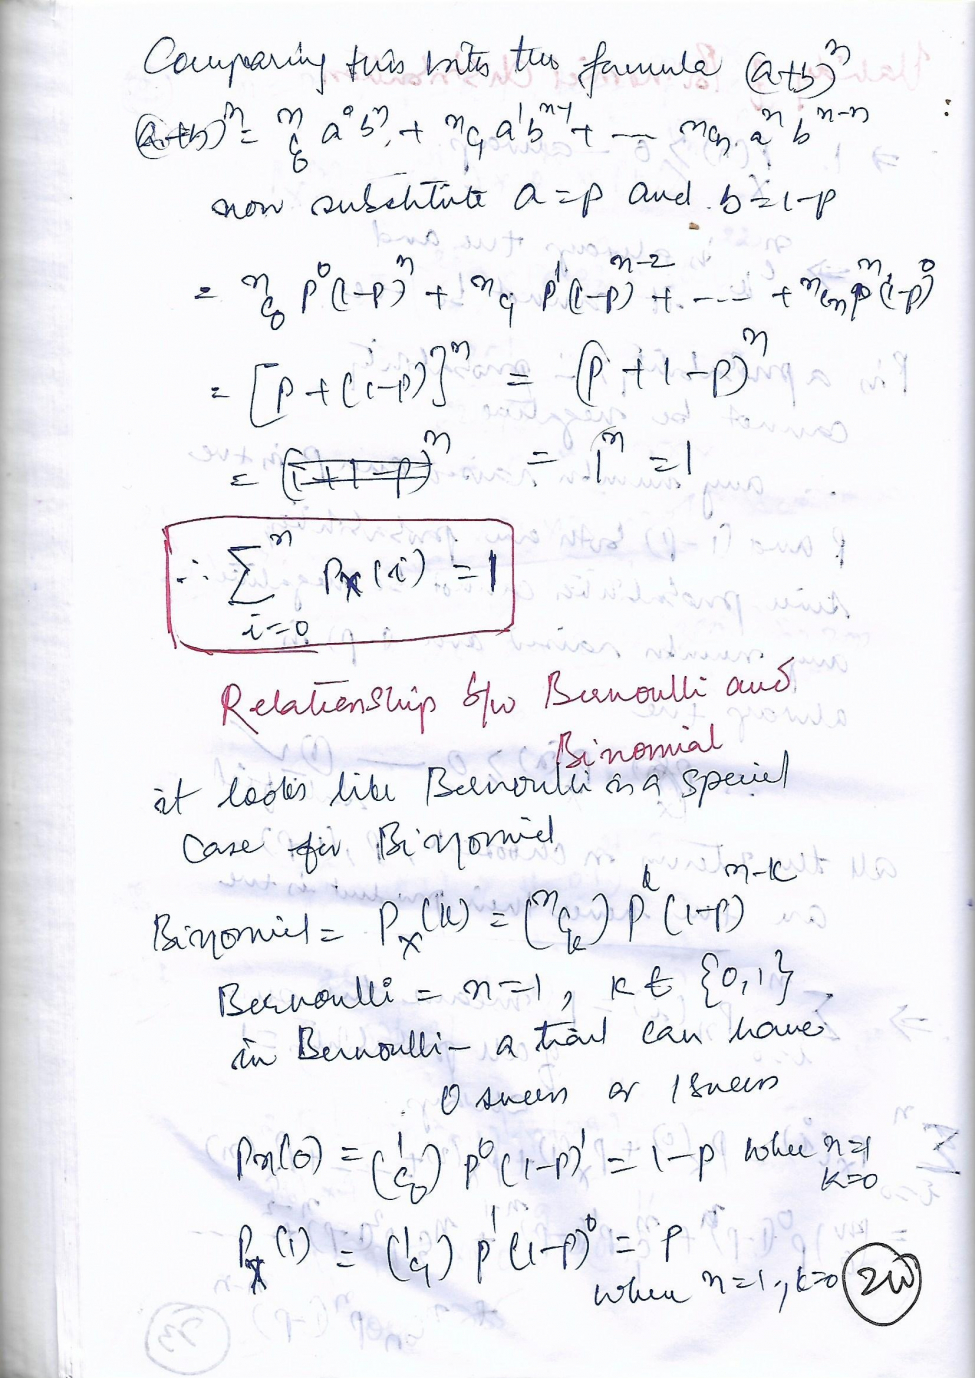 Comparing this with the formula (a+b)^n
(a+b)^n = nC0 a^0 b^n + nC1 a^1 b^n-1 + --- nCn a^n b^n-n
now substitute a=p and b=1-p
= nC0 p^0 (1-p)^n + nC1 p^1 (1-p)^n-2 + ---- + nCn p^n (1-p)^0
= [p+(1-p)]^n = (p+1-p)^n
= (1+1-p)^n = 1^n = 1
∴ Σ i=0 n Px(i) = 1
Relationship b/w Bernoulli and
Binomial
it looks like Bernoulli is a special
case for Binomial
Binomial = Px(k) = (nCk) p^k (1-p)^n-k
Bernoulli = n=1, k ∈ {0,1}
in Bernoulli - a trail can have
0 success or 1 success
Px(0) = (1C0) p^0 (1-p)^1 = 1-p when n=1
k=0
Px(1) = (1C1) p^1 (1-p)^0 = p
when n=1, k=0